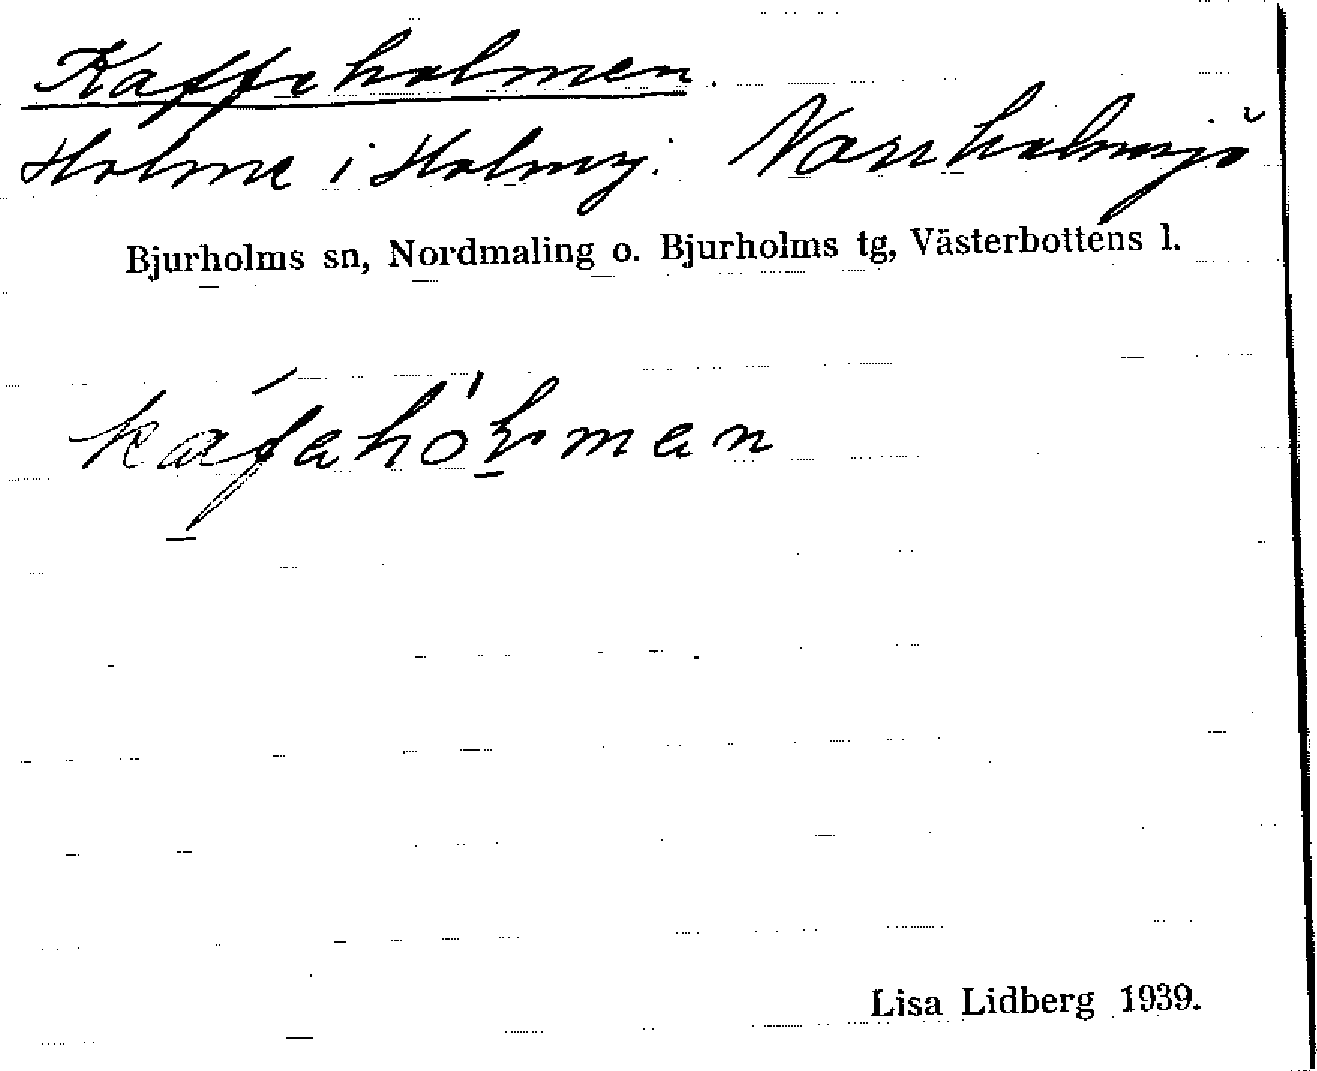 Kaffeholmen.
Holme i Holmsj. Norrholmsjö
Bjurholms sn, Nordmaling o. Bjurholms tg, Västerbottens l.
Lisa Lidberg 1939.